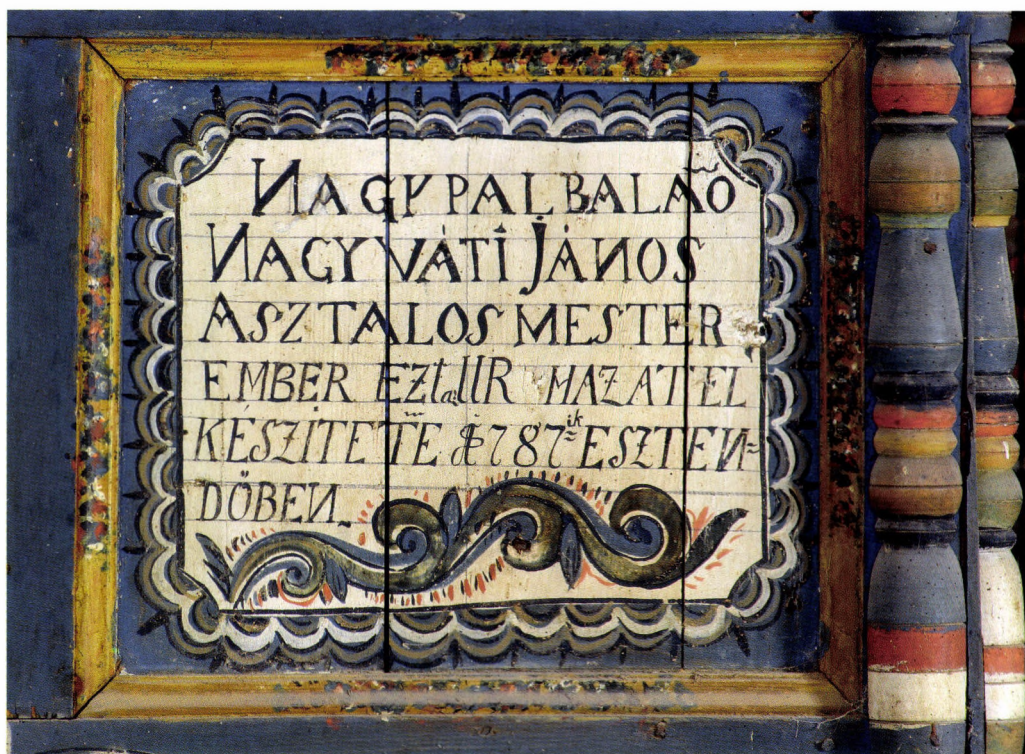 NAGY PAL BALAŚO
NAGYVÁTI JÁNOS
ASZTALOS MESTER
EMBER EZt a UR HAZAT EL
KÉSZITETTE 1787ik ESZTEN=
DÖBEN